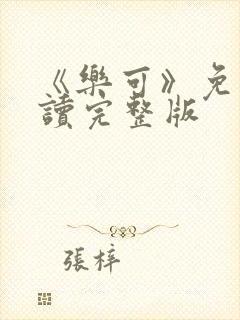 《樂可》免
讀完整版
張梓